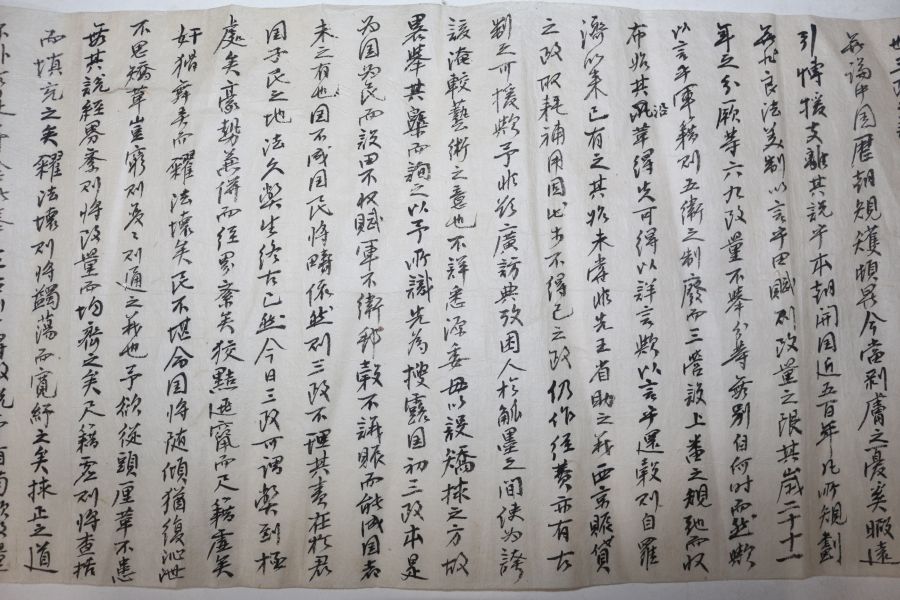 也三政
哉論中国歷朝規模頗異今當剝膚之憂奚暇遠
引博援支離其說乎本朝開国近五百年凡所規劃
無非良法美制以言乎田賦則改量之限其歲二十
年之分厥等六九改量不擧分等無別自何時而然歟
以言乎軍籍則五衛之制廢而三營設上番之規弛而收
布始其沿革得失可得以詳言歟以言乎還穀則自羅
濟以來已有之其始未嘗非先王省助之義西京賑貸
之政取耗補用固出於不得已之政仍作經費亦有古
制之可援歟予非欲廣訪典攷困人於觚墨之間使為誇
該淹較藝術之意也不詳悉源委毋以設矯捄之方故
畧擧其槩而詢之以予所識先為搜露国初三政本是
為国為民而設田不收賦軍不衛邦穀不議賑而能成国者
未之有也国不成国民將疇依然則三政不理其責在於君
国子民之地法久獘生終古已然今日三政可謂獘到極
處矣豪勢兼倂而經界紊矣狡黠逃竄而尺籍虛矣
奸猾舞弄而糶法壞矣民不堪命国將隨傾猶復沁泄
不思矯革豈窮則變〻則通之義也予欲從頭厘革不患
無其說經界紊則將改量而均齊之矣尺籍虛則將查括
而填充之矣糶法壞則將蠲蕩而寬紓之矣捄正之道